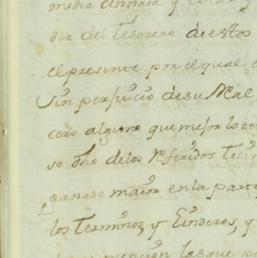 media annata y
dia del Tesorero de estos
el presente por el qual
Sin perjuicio de su Mal
cero alguno que mejor lo
so dho delos Referidos
ganado maior en la parte
los terminos y Linderos, y
los que